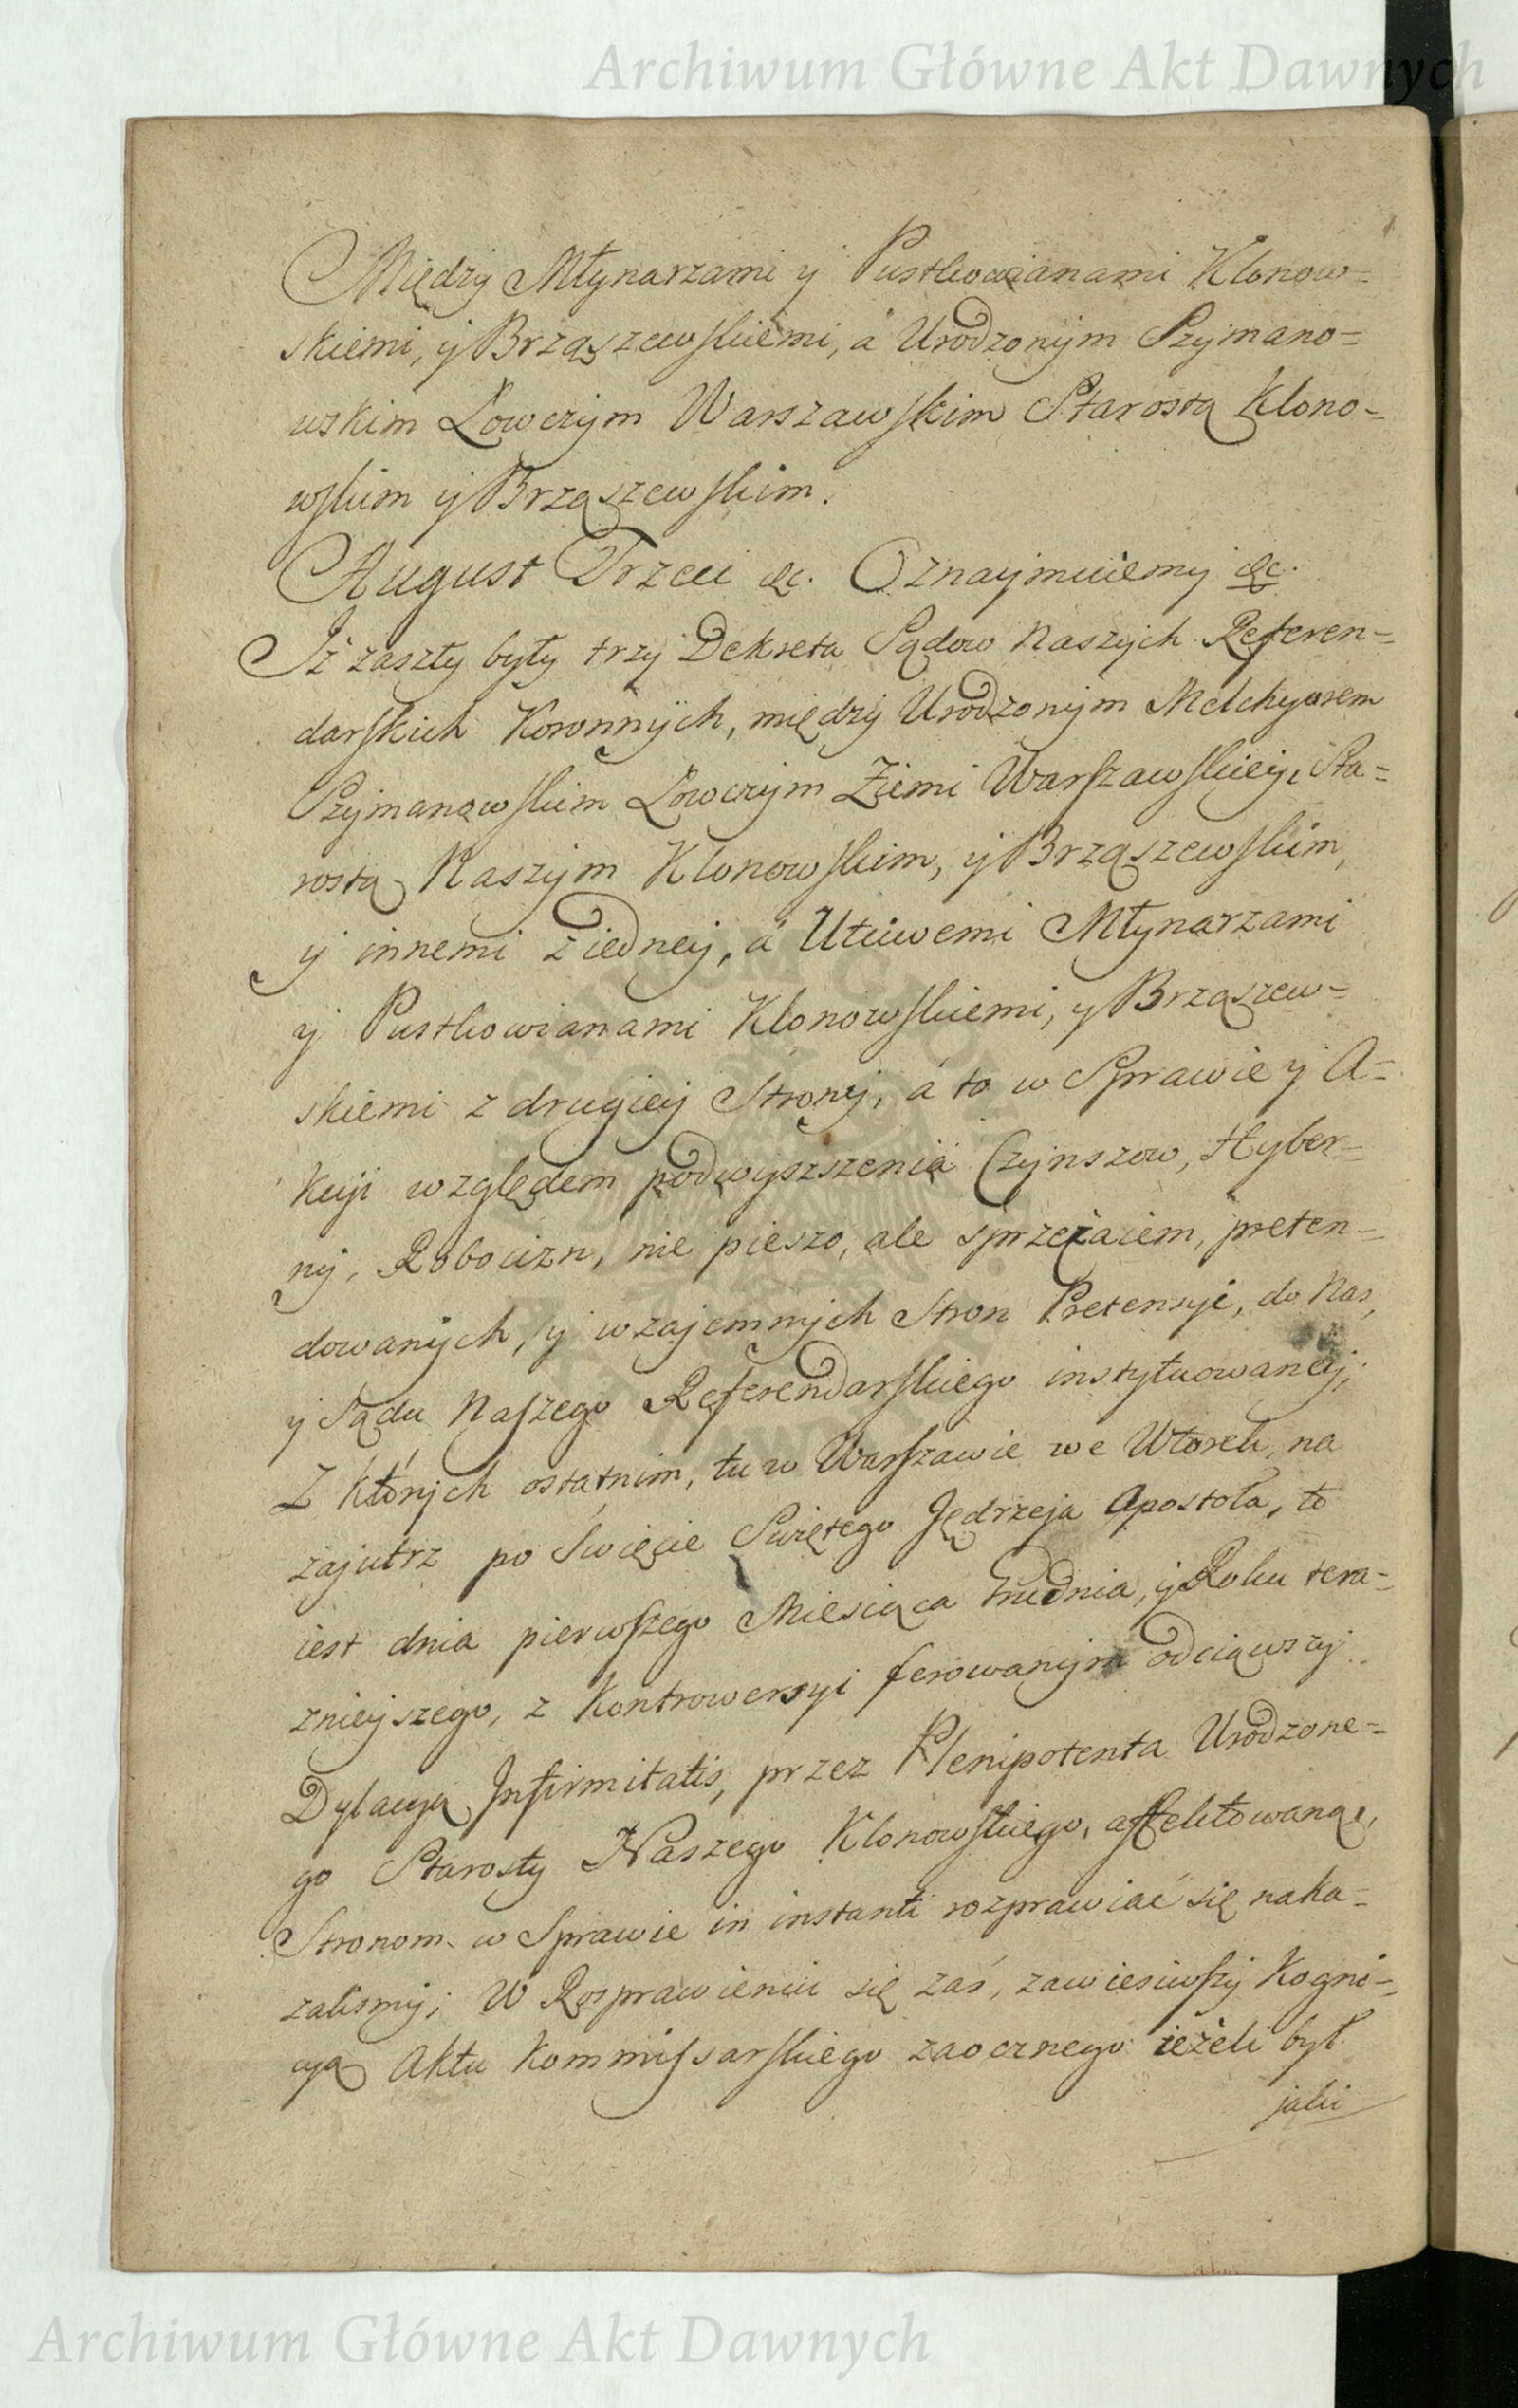 Archiwum Główne Akt Dawnych
Między Młynarzami y Pustkowianami Klonow=
skiemi, y Brząszewskiemi, á Urodzonym Szymano=
wskim Łowczym Warszawskim Starostą Klono=
wskim y Brząszewskim.
August Trzeci &c. Oznaymuiemy &c.
Iż zaszły były trzy Dekreta Sądow Naszych Referen=
darskich Koronnych, między Urodzonym Melchyorem
Szymanowskim Łowczym Ziemi Warszawskiey, Sta=
rostą Naszym Klonowskim, y Brząszewskim,
y innemi z iedney, á Utciwemi Młynarzami
y Pustkowianami Klonowskiemi, y Brząszew=
skiemi z drugiey Strony, á to w Sprawie y A=
kcyi względem podwyszszenia Czynszow, Hyber=
ny, Robocizn, nie pieszo, ale sprzężaiem, preten=
dowanych, y wzajemnych Stron Pretensyi, do Nas,
y Sądu Naszego Referendarskiego instytuowaney;
Z ktorych ostatnim, tu w Warszawie we Wtorek, na
zajutrz po Swięcie Swiętego Jędrzeja Apostoła, to
iest dnia pierwszego Miesiąca Grudnia, y Roku tera=
znieyszego, z Kontrowersyi ferowanym odciąwszy
Dylacyą Infirmitatis, przez Plenipotenta Urodzone=
go Starosty Naszego Klonowskiego, affektowaną,
Stronom w Sprawie in instanti rozprawiać się naka=
zalismy; W Rosprawieniu się zaś, zawiesiwszy Kogni=
cyą Aktu Kommissarskiego zaocznego ieżeli był
jaki
Archiwum Główne Akt Dawnych